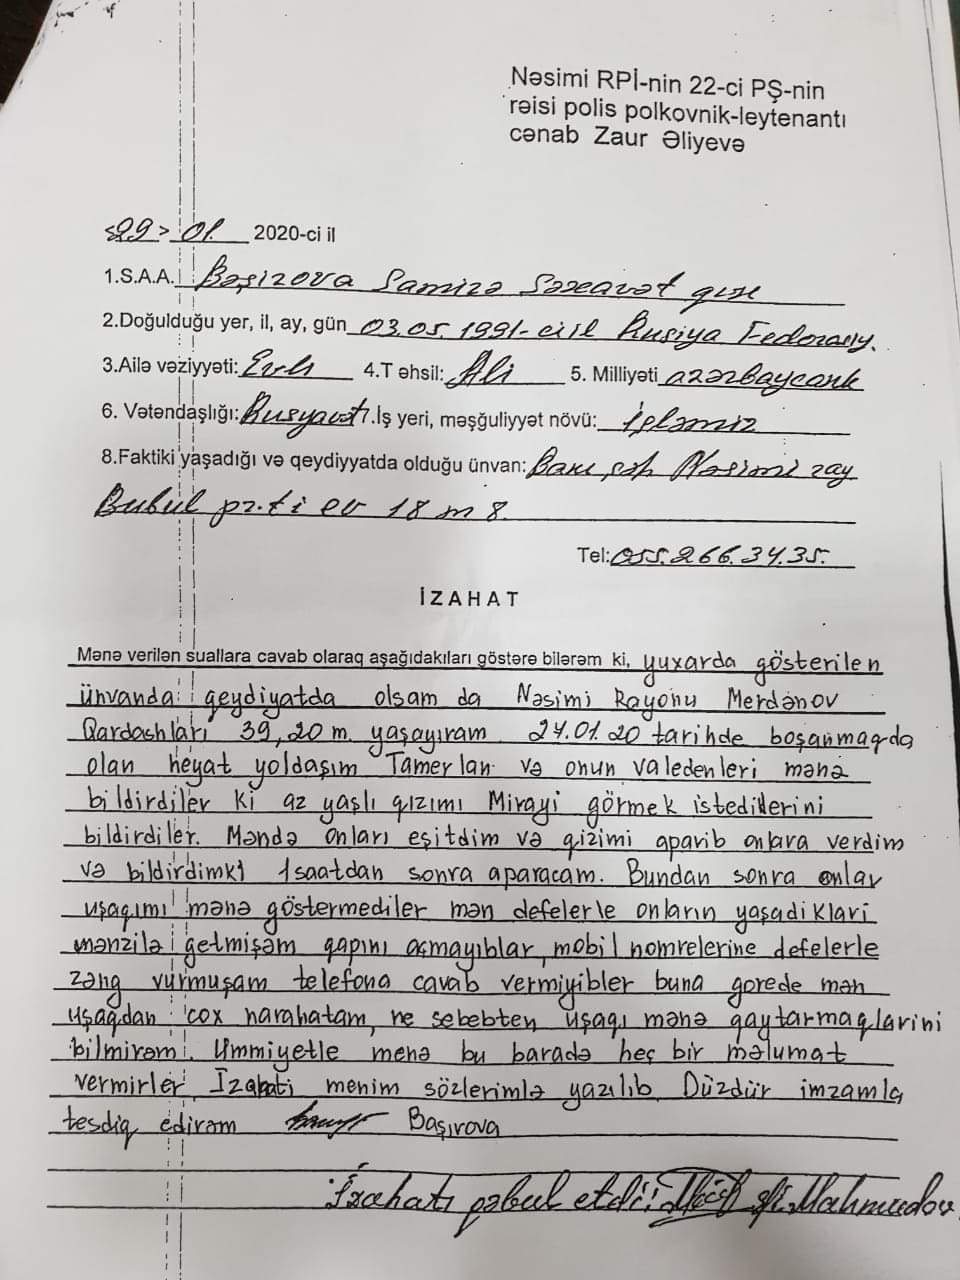 Nəsimi RPİ-nin 22-ci PŞ-nin
rəisi polis polkovnik-leytenantı
cənab Zaur Əliyevə
<29> 01. 2020-ci il
1.S.A.A. Bəşirova Samirə Səxavət qızı
2.Doğulduğu yer, il, ay, gün 03.05.1991-ci il Rusiya Federasiy.
3.Ailə vəziyyəti: Evli 4.T əhsil: Ali 5. Milliyəti azərbaycanlı
6. Vətəndaşlığı: Rusyavət 7.İş yeri, məşğuliyyət növü: İşləmir
8.Faktiki yaşadığı və qeydiyyatda olduğu ünvan: Bakı şəh Nəsimi ray
Bulbul pr.ti ev 18 m 8.
Tel: 055.266.34.35.
İZAHAT
Mənə verilən suallara cavab olaraq aşağıdakıları göstərə bilərəm ki, yuxarda gösterilen
ünvanda qeydiyatda olsam da Nəsimi Rayonu Merdənov
Qardashları 39, 20 m. yaşayıram 24.01.20 tarihde boşanmaqda
olan heyat yoldaşım Tamerlan və onun valedenleri mənə
bildirdiler ki az yaşlı qızımı Mirayi görmek istediklerini
bildirdiler. Məndə onları eşitdim və qizimi aparib onlara verdim
və bildirdimki 1 saatdan sonra aparacam. Bundan sonra onlar
uşaqımı mənə göstermediler mən defelerle onların yaşadiklari
mənzilə getmişəm qapını açmayıblar, mobil nomrelerine defelerle
zəng vurmuşam telefona cavab vermiyibler buna gorede mən
uşaqdan cox narahatam, ne sebebten uşaqı mənə qaytarmaqlarini
bilmirəm. Ummiyetle menə bu baradə heç bir məlumat
vermirler. Izahati menim sözlerimlə yazılıb. Düzdür imzamla
tesdiq edirəm Başırova
İzahatı qəbul etdi: Mahmudov